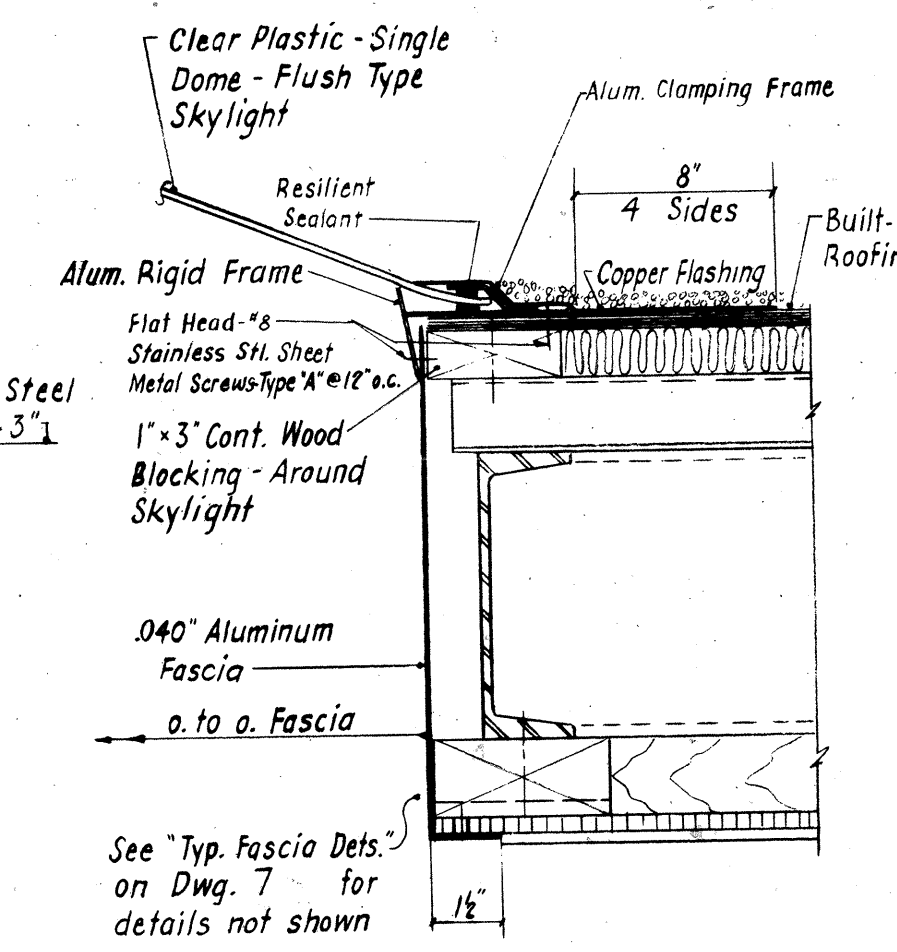 Clear Plastic - Single
Dome - Flush Type
Skylight
Alum. Clamping Frame
Resilient
Sealant
8"
4 Sides
Built-
Roofin
Alum. Rigid Frame
Copper Flashing
Flat Head-#8
Stainless Stl. Sheet
Metal Screws-Type "A" @ 12" o.c.
Steel
3"
1" x 3" Cont. Wood
Blocking - Around
Skylight
.040" Aluminum
Fascia
o. to o. Fascia
See "Typ. Fascia Dets."
on Dwg. 7 for
details not shown
1½"